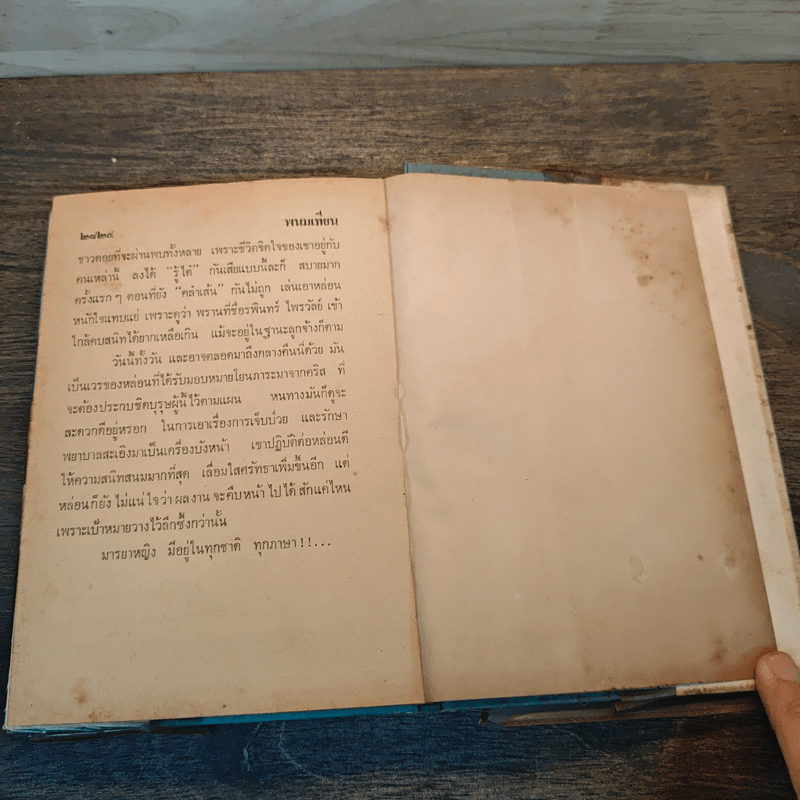 ๒๘๒๔ พนมเทียน
ชาวดอยที่จะผ่านพบทั้งหลาย เพราะชีวิตจิตใจของเขาอยู่กับ
คนเหล่านี้ ลงได้ “รู้ไต๋” กันเสียแบบนี้ละก็ สบายมาก
ครั้งแรก ๆ ตอนที่ยัง “คลำเส้น” กันไม่ถูก เล่นเอาหล่อน
หนักใจแทบแย่ เพราะดูว่า พรานที่ชื่อรพินทร์ ไพรวัลย์ เข้า
ใกล้คบสนิทได้ยากเหลือเกิน แม้จะอยู่ในฐานะลูกจ้างก็ตาม
วันนี้ทั้งวัน และอาจตลอดมาถึงกลางคืนนี่ด้วย มัน
เป็นเวรของหล่อนที่ได้รับมอบหมายโยนภาระมาจากคริส ที่
จะต้องประกบชิดบุรุษผู้นี้ไว้ตามแผน หนทางมันก็ดูจะ
สะดวกดีอยู่หรอก ในการเอาเรื่องการเจ็บป่วย และรักษา
พยาบาลสะเอิงมาเป็นเครื่องบังหน้า เขาปฏิบัติต่อหล่อนดี
ให้ความสนิทสนมมากที่สุด เลื่อมใสศรัทธาเพิ่มขึ้นอีก แต่
หล่อนก็ยัง ไม่แน่ใจว่า ผลงาน จะคืบหน้า ไปได้ สักแค่ไหน
เพราะเป้าหมายวางไว้ลึกซึ้งกว่านั้น
มารยาหญิง มีอยู่ในทุกชาติ ทุกภาษา ! ! . . .